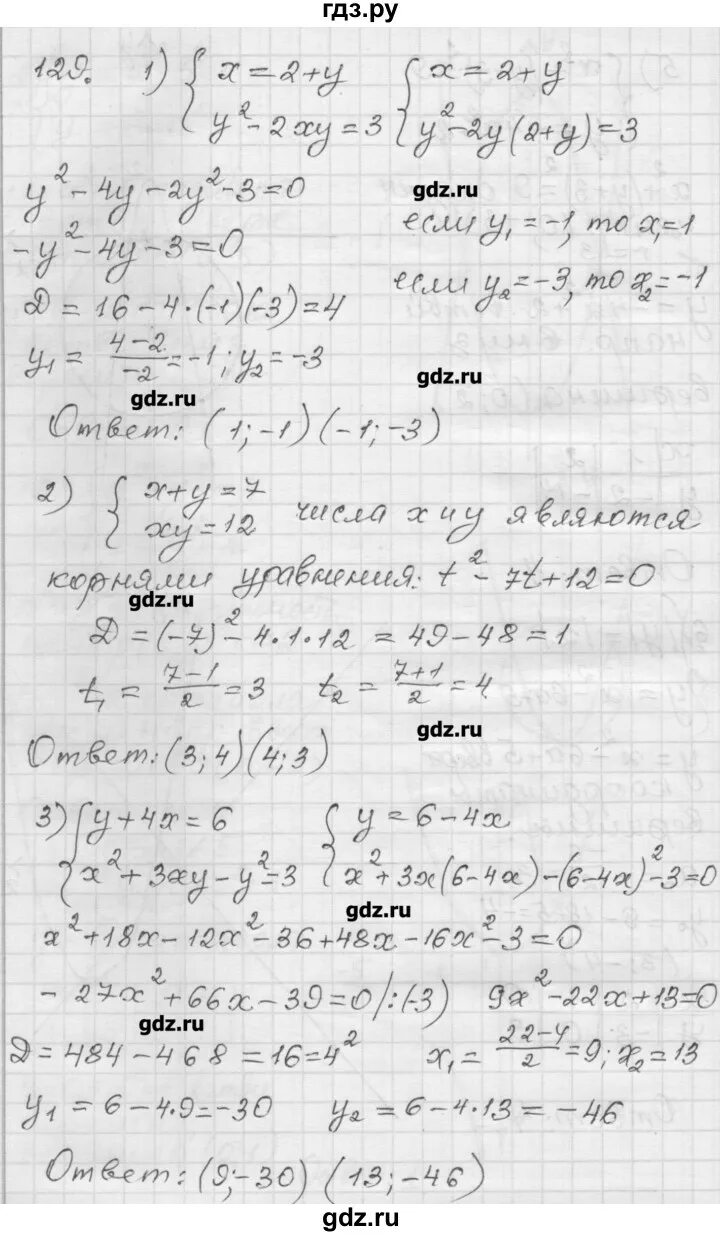 гдз.ру
129. 1) { x = 2+y { x = 2+y
y² - 2xy = 3 y² - 2y(2+y) = 3
y² - 4y - 2y² - 3 = 0
gdz.ru
-y² - 4y - 3 = 0
если y₁ = -1, то x₁ = 1
D = 16 - 4·(-1)(-3) = 4
если y₂ = -3, то x₂ = -1
y₁ = (4-2)/(-2) = -1; y₂ = -3
gdz.ru
gdz.ru
Ответ: (1; -1) (-1; -3)
2) { x+y = 7
xy = 12 числа x и y являются
корнями уравнения: t² - 7t + 12 = 0
gdz.ru
D = (-7)² - 4·1·12 = 49 - 48 = 1
t₁ = (7-1)/2 = 3 t₂ = (7+1)/2 = 4
gdz.ru
Ответ: (3; 4) (4; 3)
3) { y + 4x = 6 { y = 6 - 4x
x² + 3xy - y² = 3 x² + 3x(6-4x) - (6-4x)² - 3 = 0
gdz.ru
x² + 18x - 12x² - 36 + 48x - 16x² - 3 = 0
- 27x² + 66x - 39 = 0 /:(-3) 9x² - 22x + 13 = 0
gdz.ru
D = 484 - 468 = 16 = 4² x₁ = (22-4)/2 = 9; x₂ = 13
y₁ = 6 - 4·9 = -30 y₂ = 6 - 4·13 = -46
Ответ: (9; -30) (13; -46)
gdz.ru